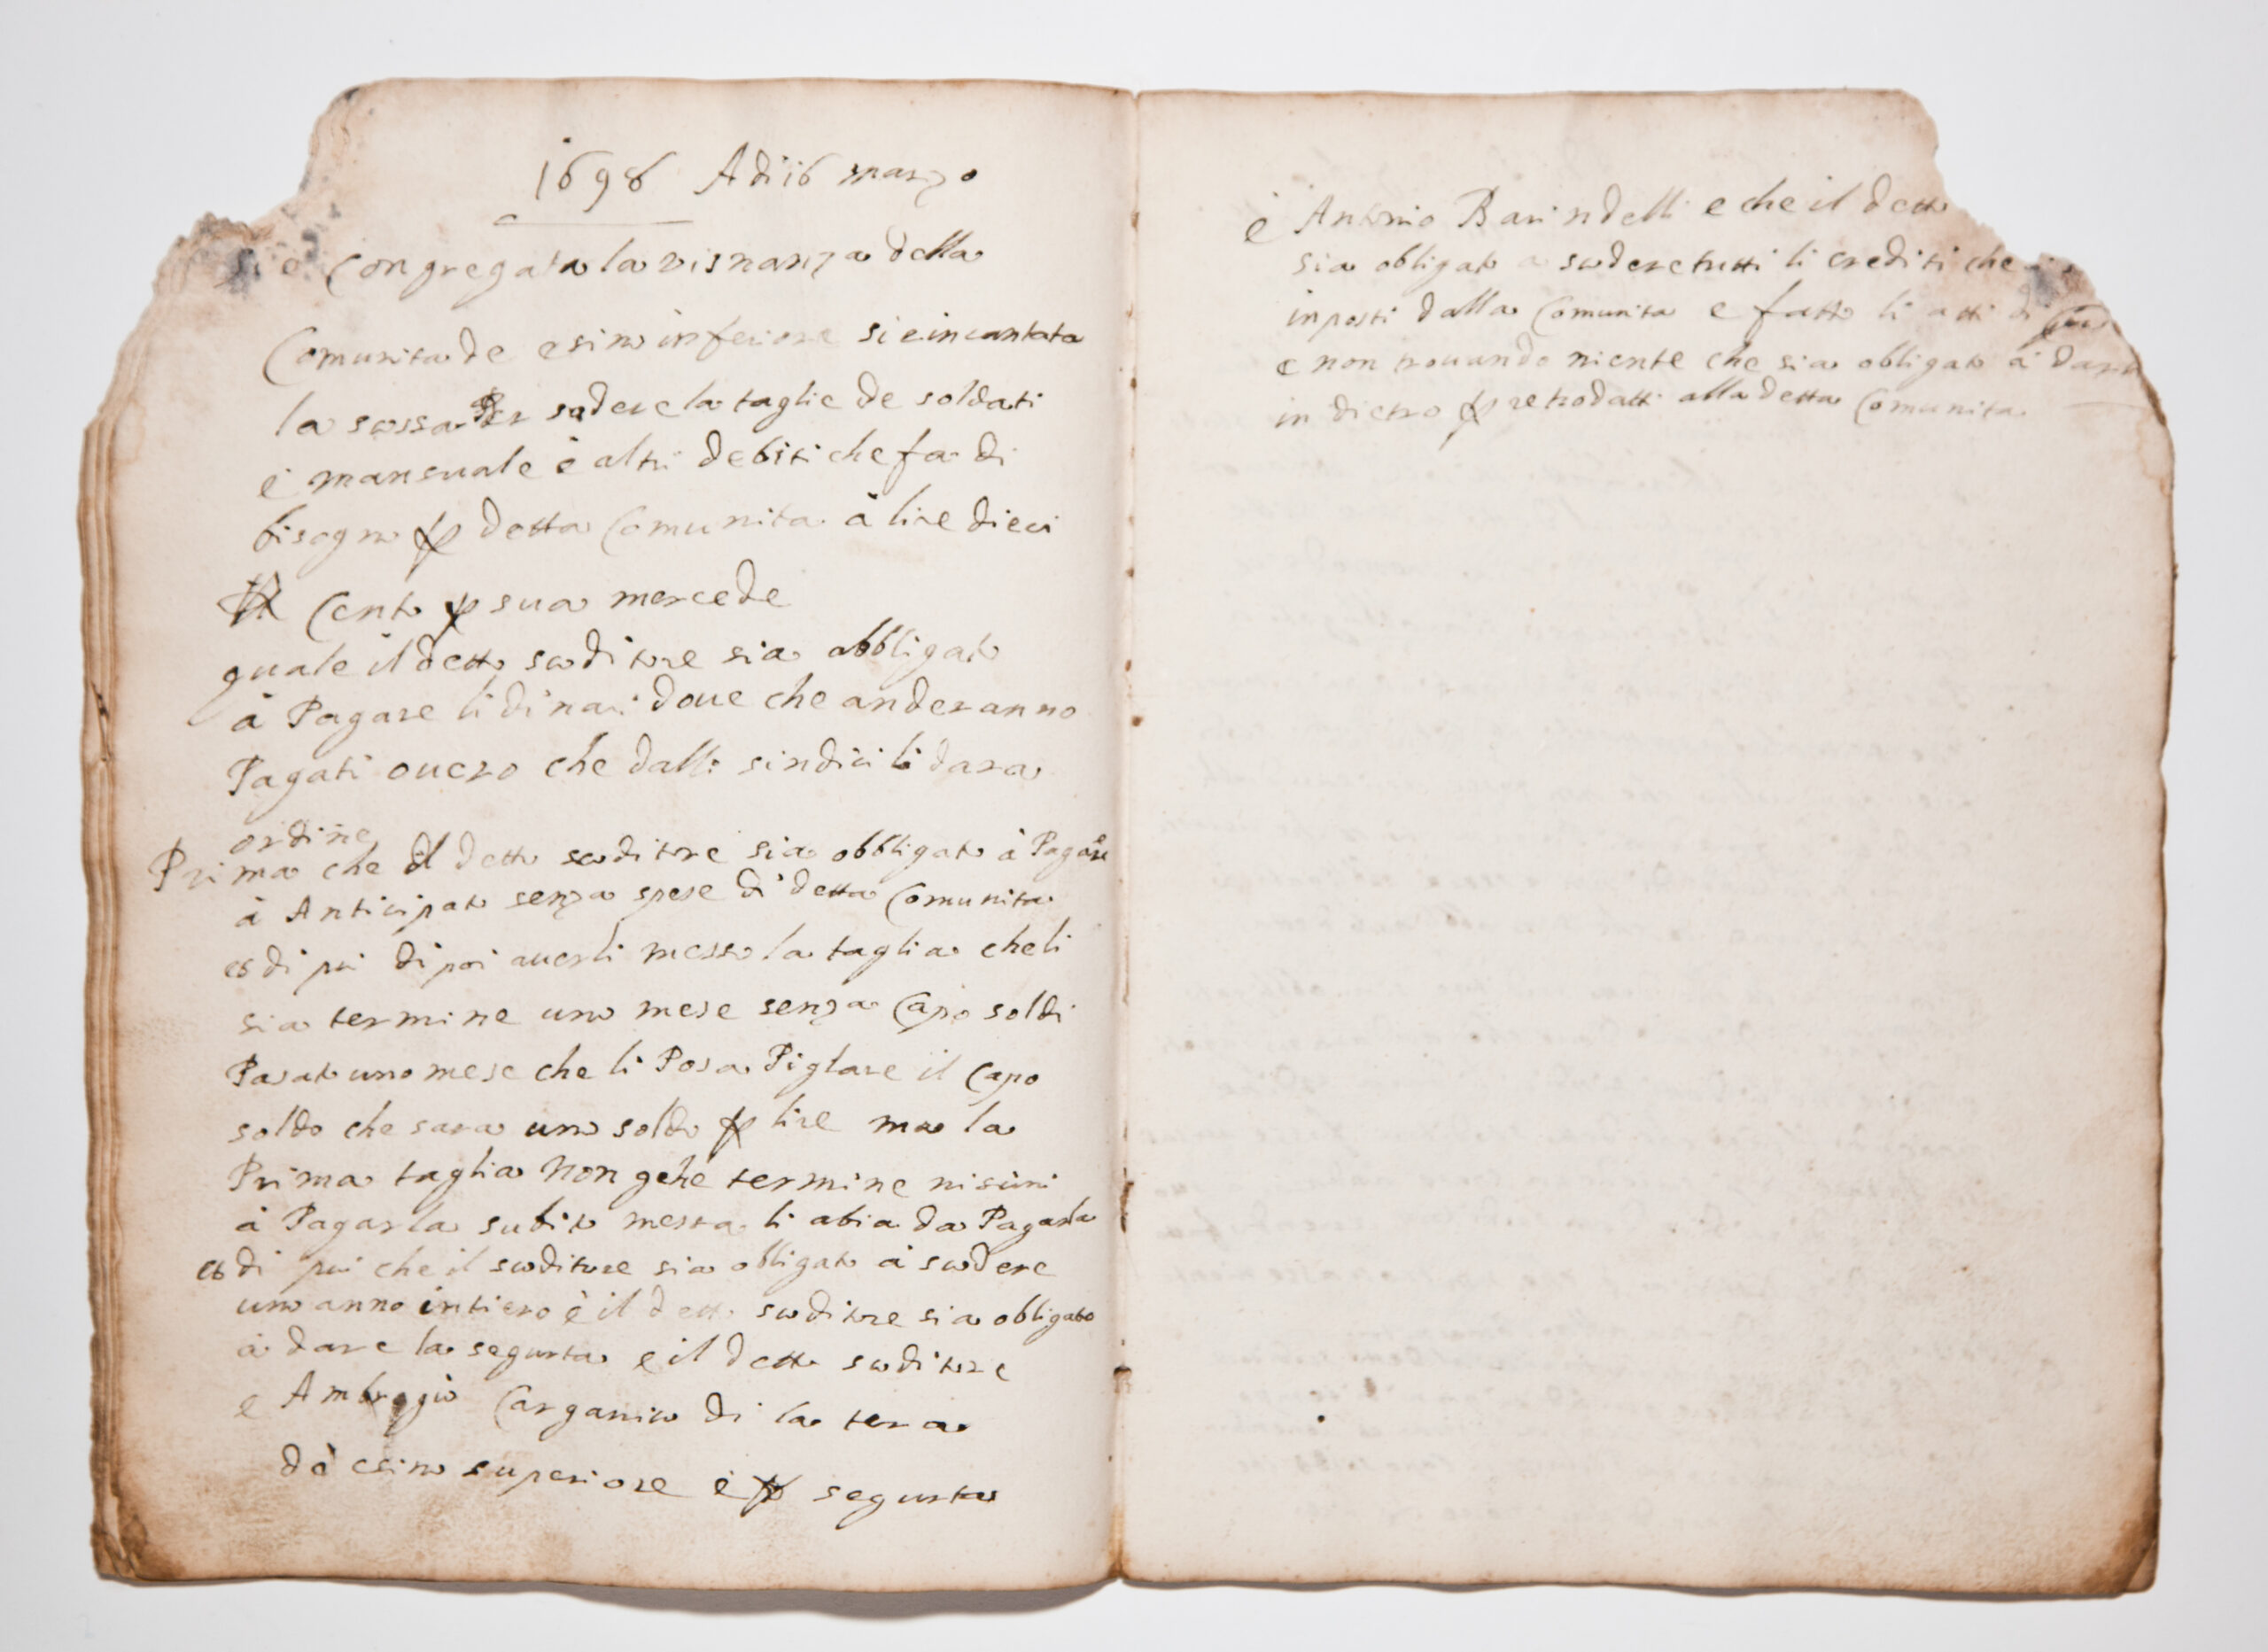 1698 Adi 16 marzo
si è Congregata la visnanza della
Comunita de esino inferiore si e incantata
la scossa Per scodere la taglie de soldati
è mansuale è altri debiti che fa di
bisogno p detta Comunita à lire dieci
Cento p sua mercede
quale il detto scoditore sia obbligato
à Pagare li dinari doue che anderanno
Pagati ouero che dalli sindici li dara
ordine
Prima che il detto scoditore sia obbligato à Pagare
à Anticipato senza spese di detta Comunita
et di piu di poi auerli messo la taglia che li
sia termine uno mese senza Capo soldi
Pasato uno mese che li Posa Piglare il Capo
soldo che sara uno soldo p lire ma la
Prima taglia non gehe termine nisuni
à Pagarla subito messa li abia da Pagarla
et di piu che il scoditore sia obligato à scodere
uno anno intiero è il detto scoditore sia obligato
à dare la segurta e il detto scoditore
e Ambrogio Carganico di la tera
dè esino superiore è p segurta
è Antonio Barindelli e che il detto
sia obligato a scodere tutti li crediti che
inposti dalla Comunita e fatto li atti di
e non trouando niente che sia obligato à darli
in dietro p retrodatti alla detta Comunita